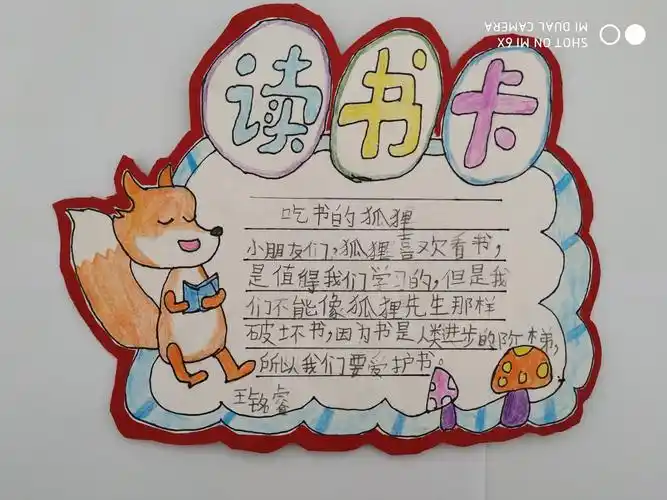 读书卡
吃书的狐狸
小朋友们,狐狸喜欢看书,
是值得我们学习的,但是我
们不能像狐狸先生那样
破坏书,因为书是人类进步的阶梯,
所以我们要爱护书。
王铭睿
SHOT ON MI 6X
MI DUAL CAMERA